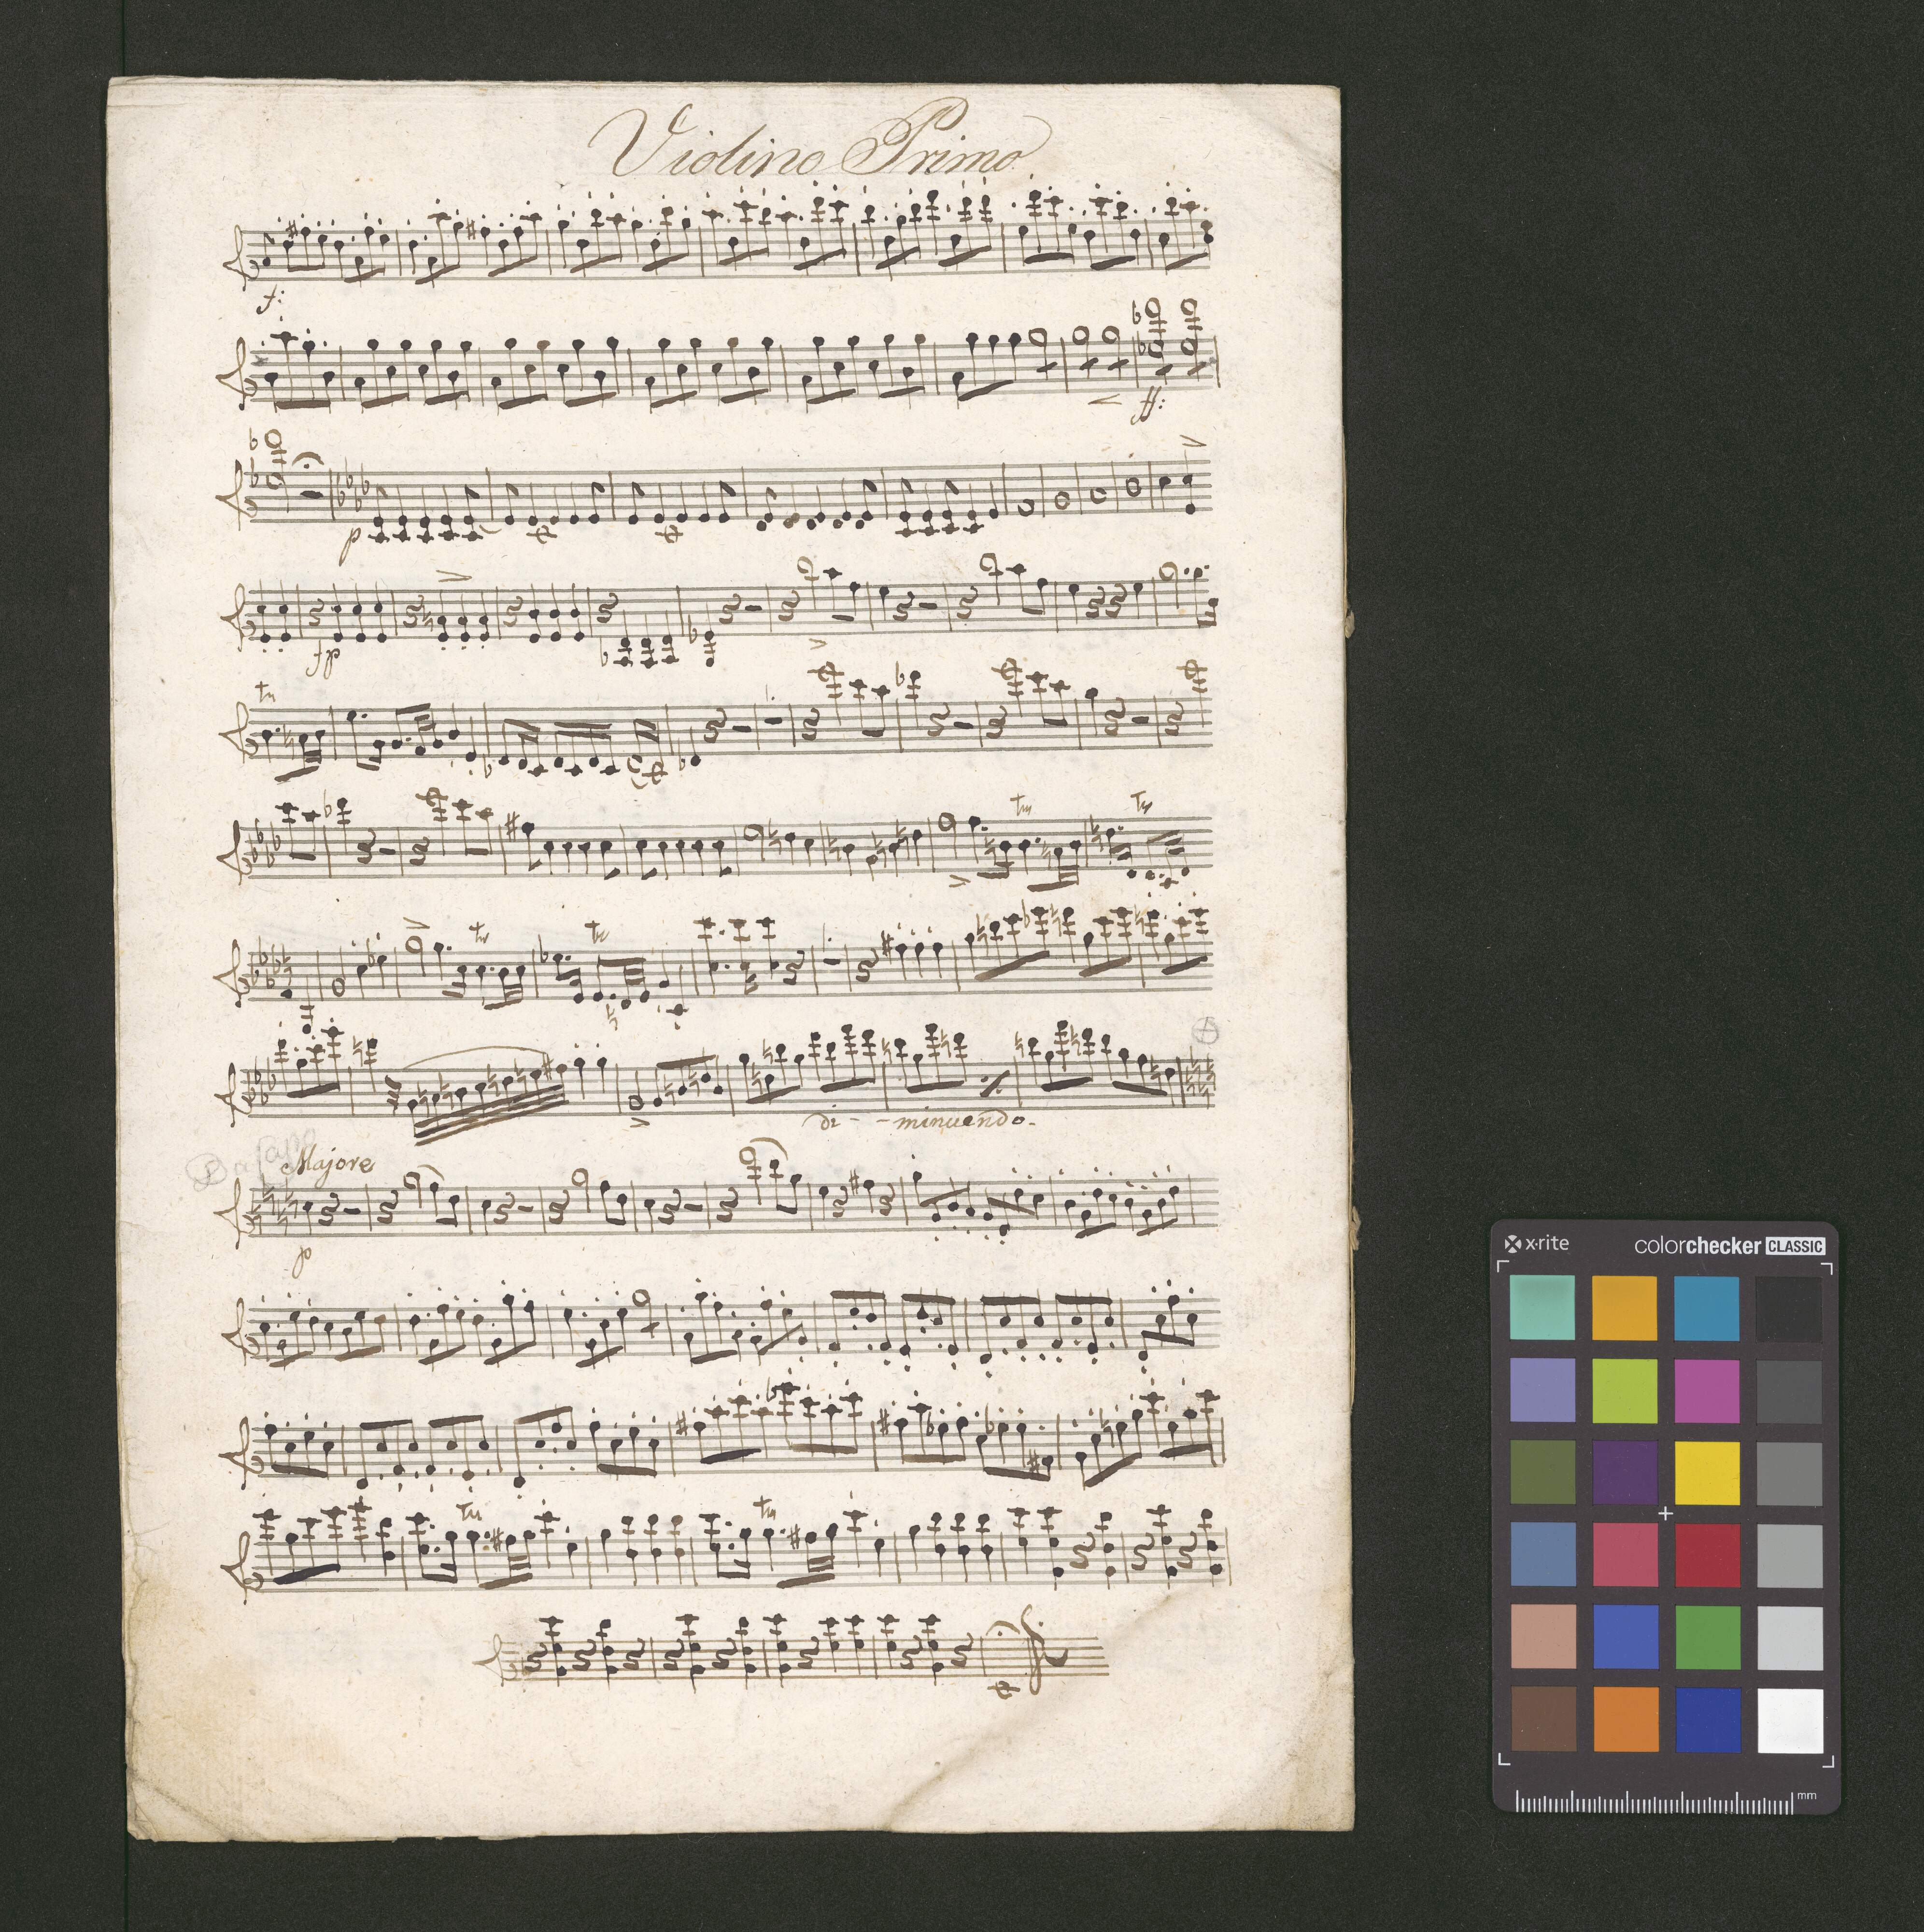 Violino Primo.
f:
ff:
p
fp
tr
tr tr
tr tr
di - - minuendo -
Majore
p
tr tr
x·rite colorchecker CLASSIC
mm